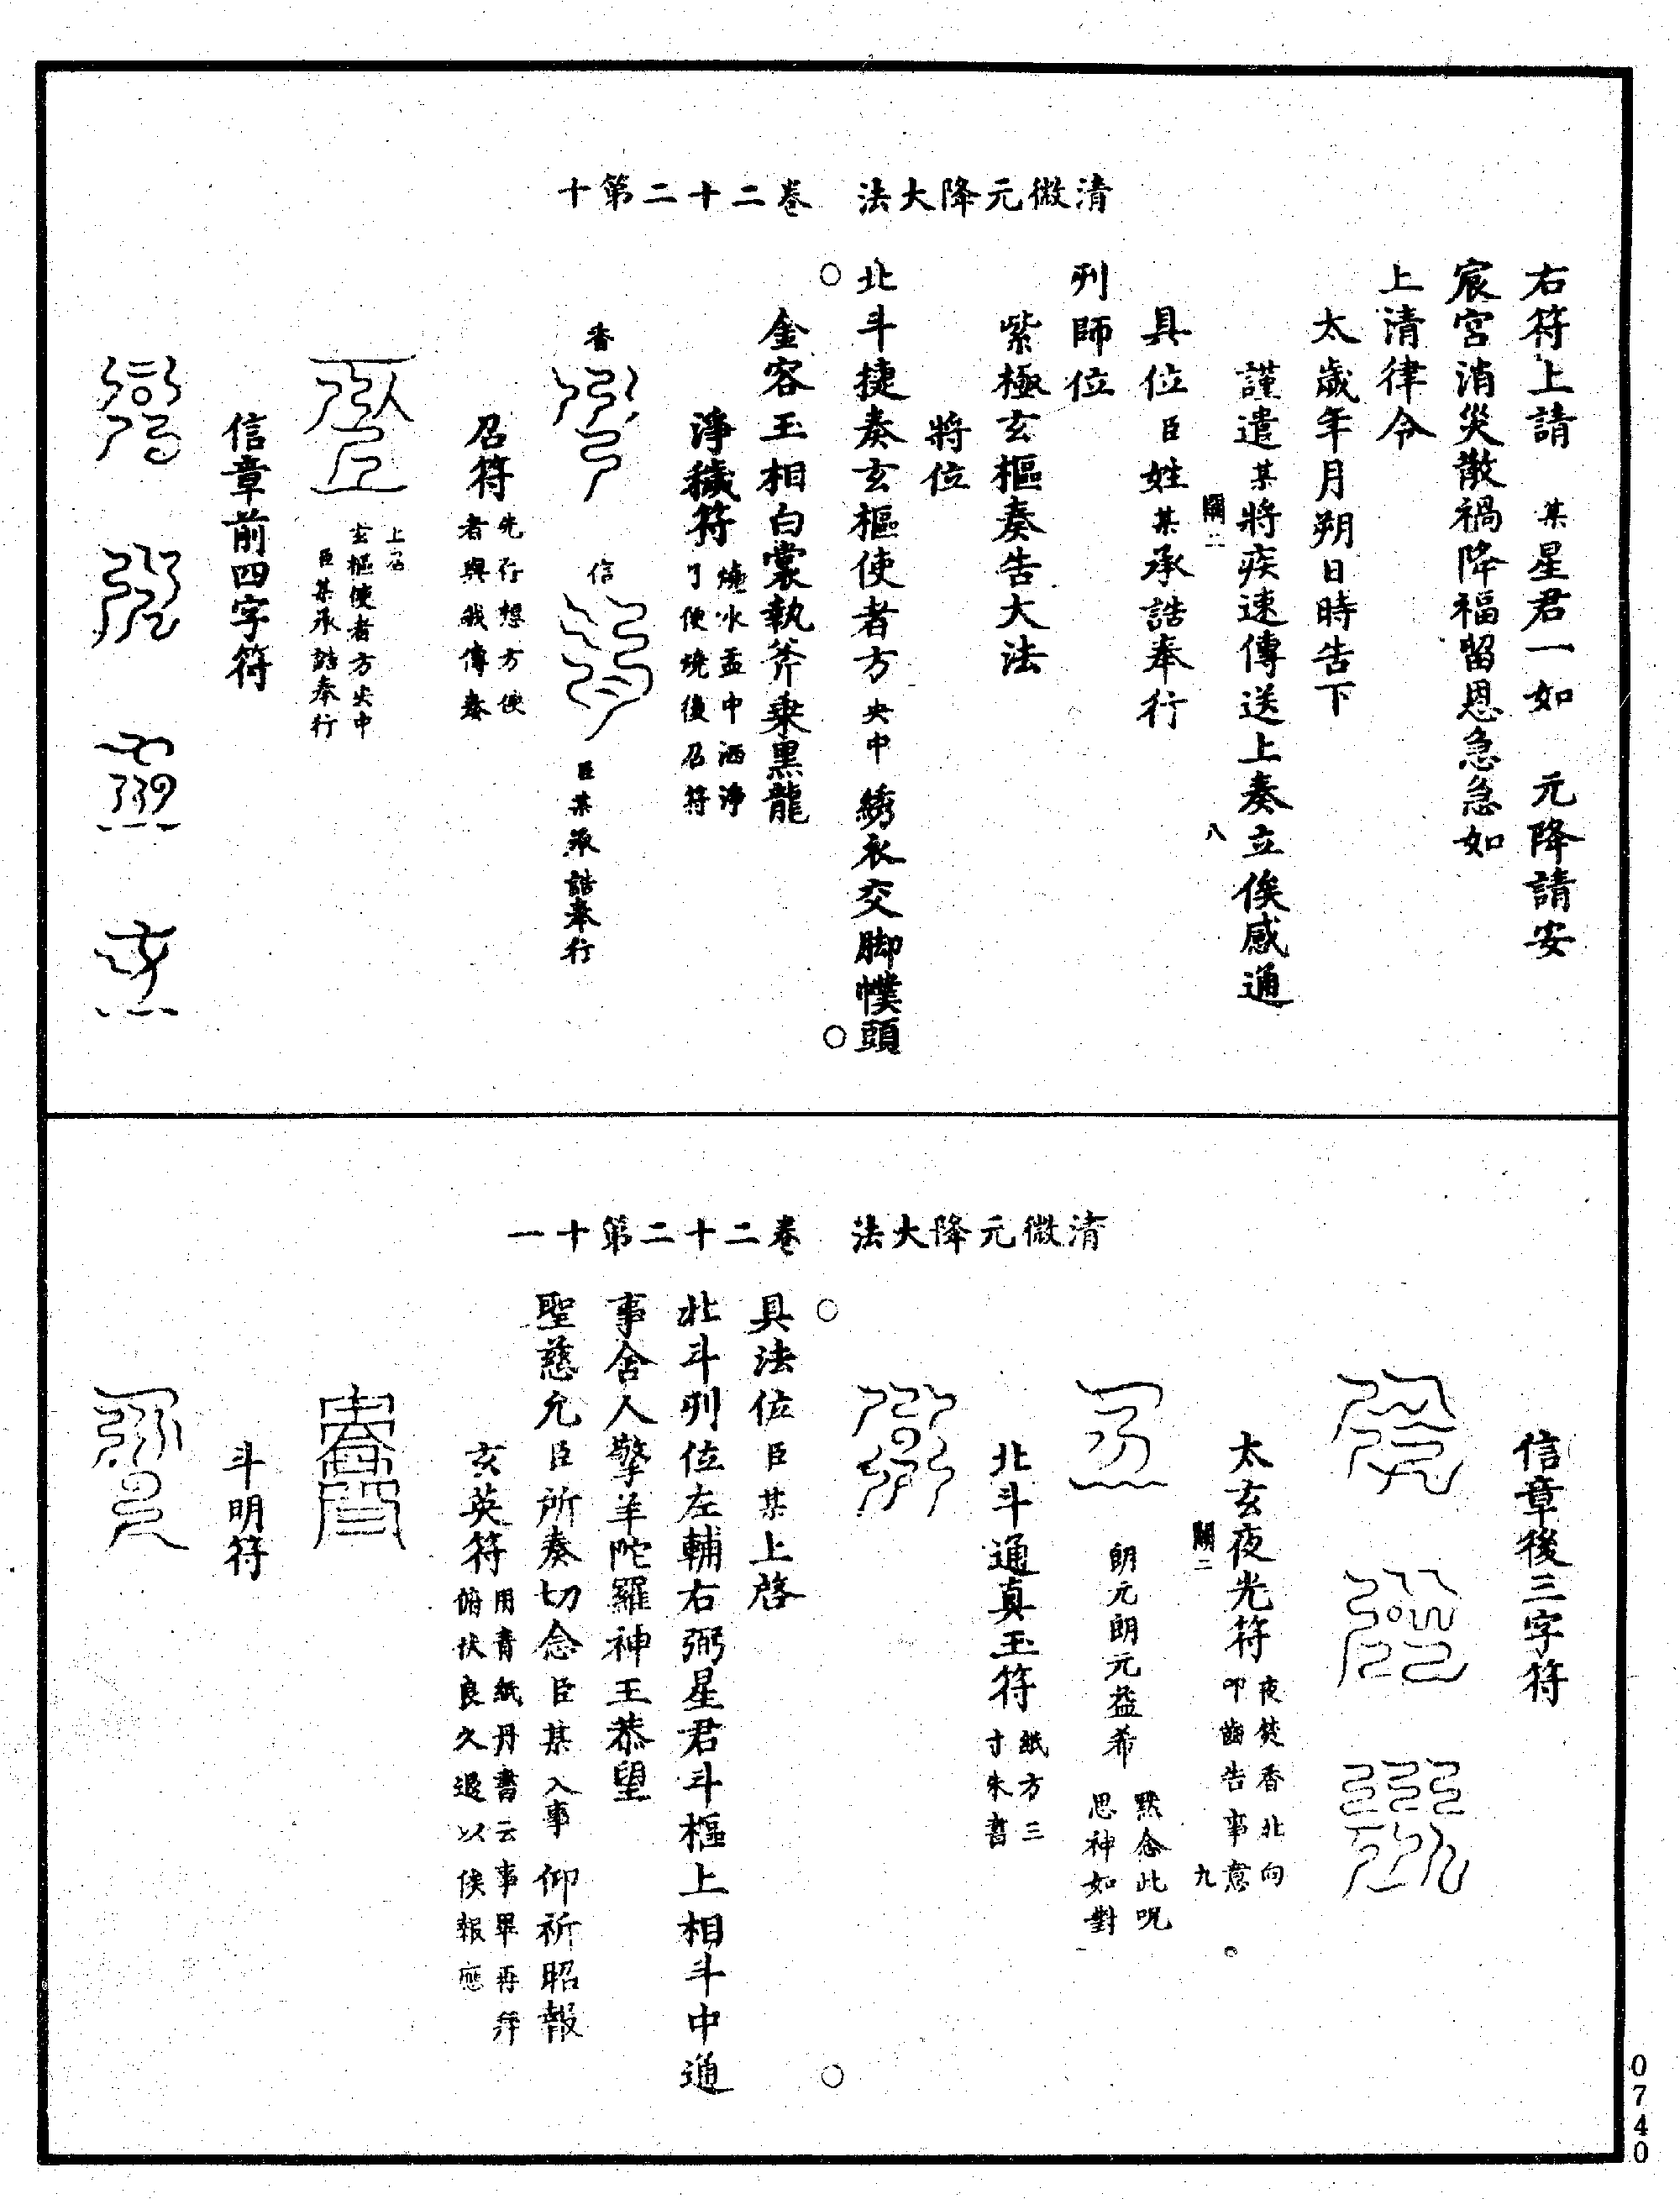 清微元降大法　卷二十二第十
右符上請　某星君一如　元降請安
宸宮消災散禍降福留恩急急如
上清律令
太歲年月朔日時告下
謹遣某將疾速傳送上奏立俟感通
八
具位臣姓某承誥奉行
列師位
紫極玄樞奏告大法
將位
北斗捷奏玄樞使者方央中綉衣交脚幞頭
金容玉相白裳執斧乘黑龍
淨穢符燒水盂中洒淨
了便燒後召符
香
信
臣某承誥奉行
召符先行想方使
者與我傳奏
上宮
玄樞使者方央中
臣某承誥奉行
信章前四字符
清微元降大法　卷二十二第十一
信章後三字符
太玄夜光符夜焚香北向
叩齒告事意
九
朗元朗元益希默念此呪
思神如對
北斗通真玉符紙方三
寸朱書
具法位臣某上啓
北斗列位左輔右弼星君斗樞上相斗中通
事舍人擎羊陀羅神王恭望
聖慈允臣所奏切念臣某入事仰祈昭報
玄英符用青紙丹書云事畢再拜
俯伏良久退以俟報應
斗明符
0740